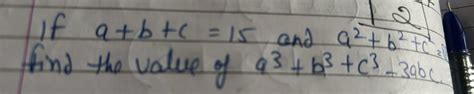 2
If a+b+c = 15 and a²+b²+c²
find the value of a³+b³+c³-3abc